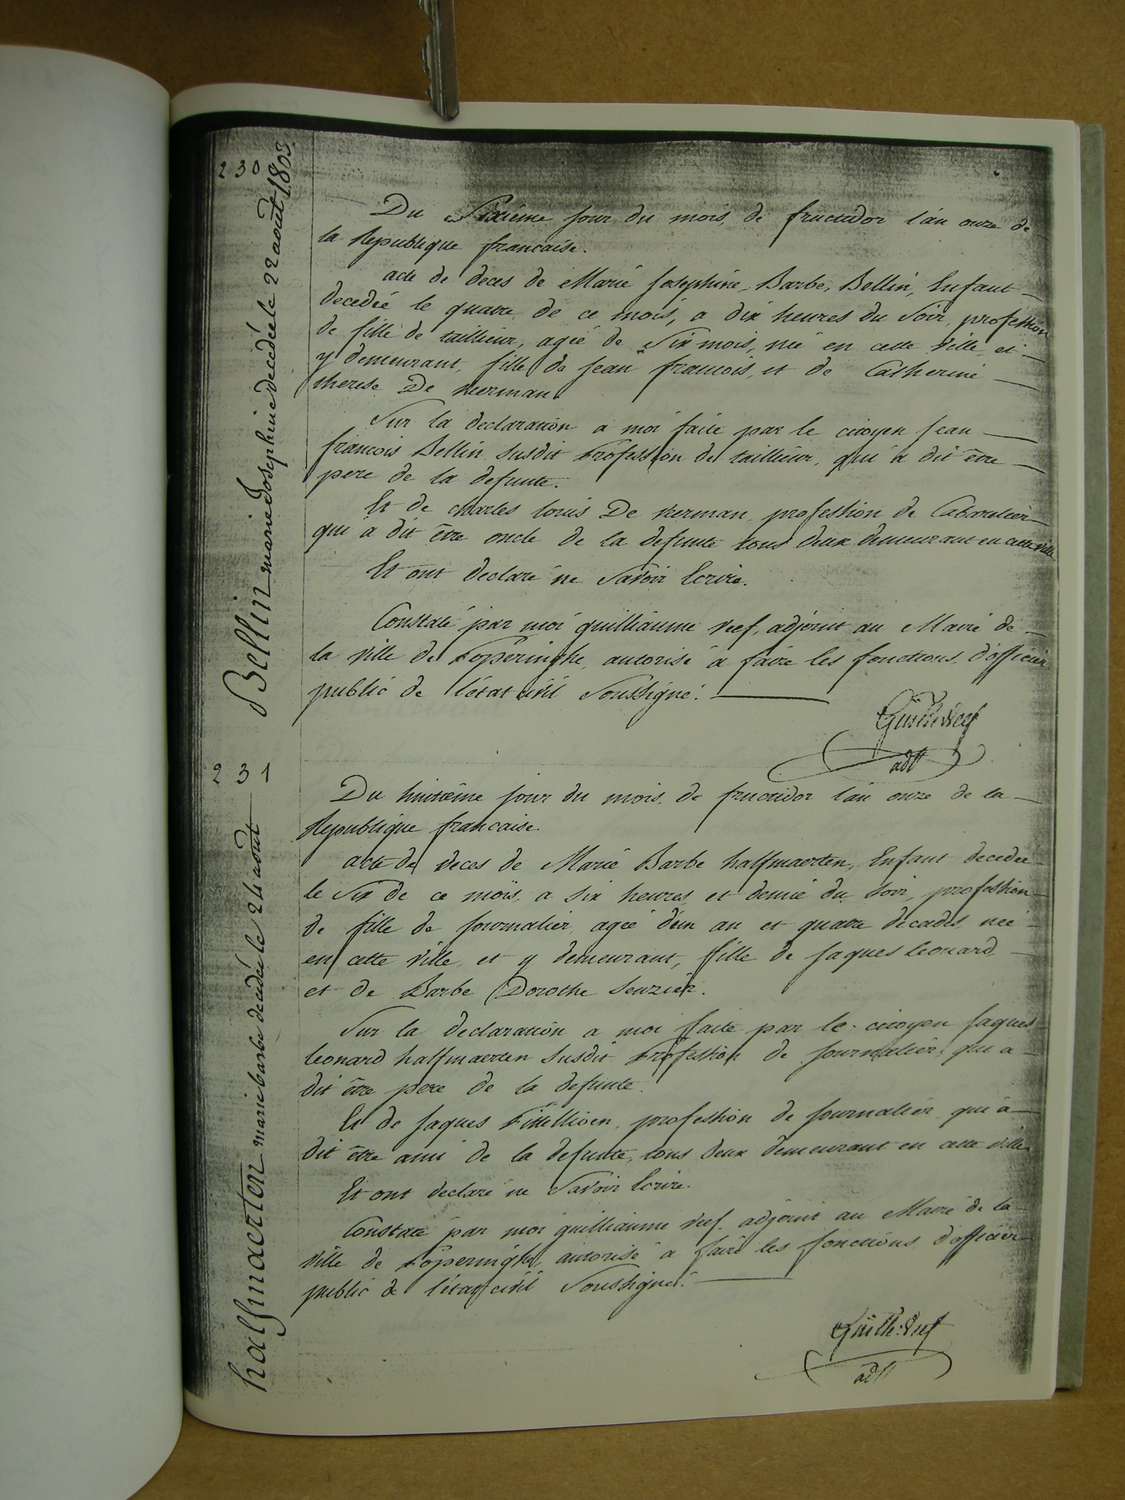 230
Bellin marie Josephine decedée le 22 août 1803.
Du Sixiéme jour du mois de fructidor l'an onze de
la Republique francaise.
acte de deces de Marie Josephine Barbe Bellin, Enfant
decedeé le quatre de ce mois, a dix heures du Soir, profession
de fille de taillieur, agée de Six mois, née en cette ville et
y demeurant, fille de Jean francois, et de Catherine
therese De kerman.
Sur la declaration a moi faite par le citoyen Jean
francois Bellin susdit Profession de taillieur, qui a dit être
pere de la defunte.
Et de charles Louis De kerman profession de Cabaretier
qui a dit être oncle de la defunte tous deux demeurant en cette ville
Et ont declaré ne Savoir Ecrire.
Constaté par moi guilliaume veef, adjoint au Maire de
la ville de Poperinghe, autorisé a faire les fonctions d'officier
public de l'état civil Soussigné.
Guill: veef
adjt
231
halfmaerten marie barbe decedée le 24 août
Du huitiéme jour du mois de fructidor l'an onze de la
Republique francaise.
acte de deces de Marie Barbe halfmaerten, Enfant decedée
le Six de ce mois a six heures et demie du Soir, profession
de fille de Journalier, agée d'un an et quatre décades, née
en cette ville et y demeurant, fille de Jaques Leonard
et de Barbe Dorothe
Sur la declaration a moi faite par le citoyen Jaques
Leonard halfmaerten susdit Profession de journalier, qui a
dit être pere de la defunte.
Et de Jaques profession de Journalier qui a
dit être ami de la defunte, tous deux demeurant en cette ville
Et ont declaré ne Savoir Ecrire.
Constaté par moi guilliaume veef, adjoint au Maire de la
ville de Poperinghe, autorisé a faire les fonctions d'officier
public de l'état civil Soussigné.
Guilh: veef
adjt